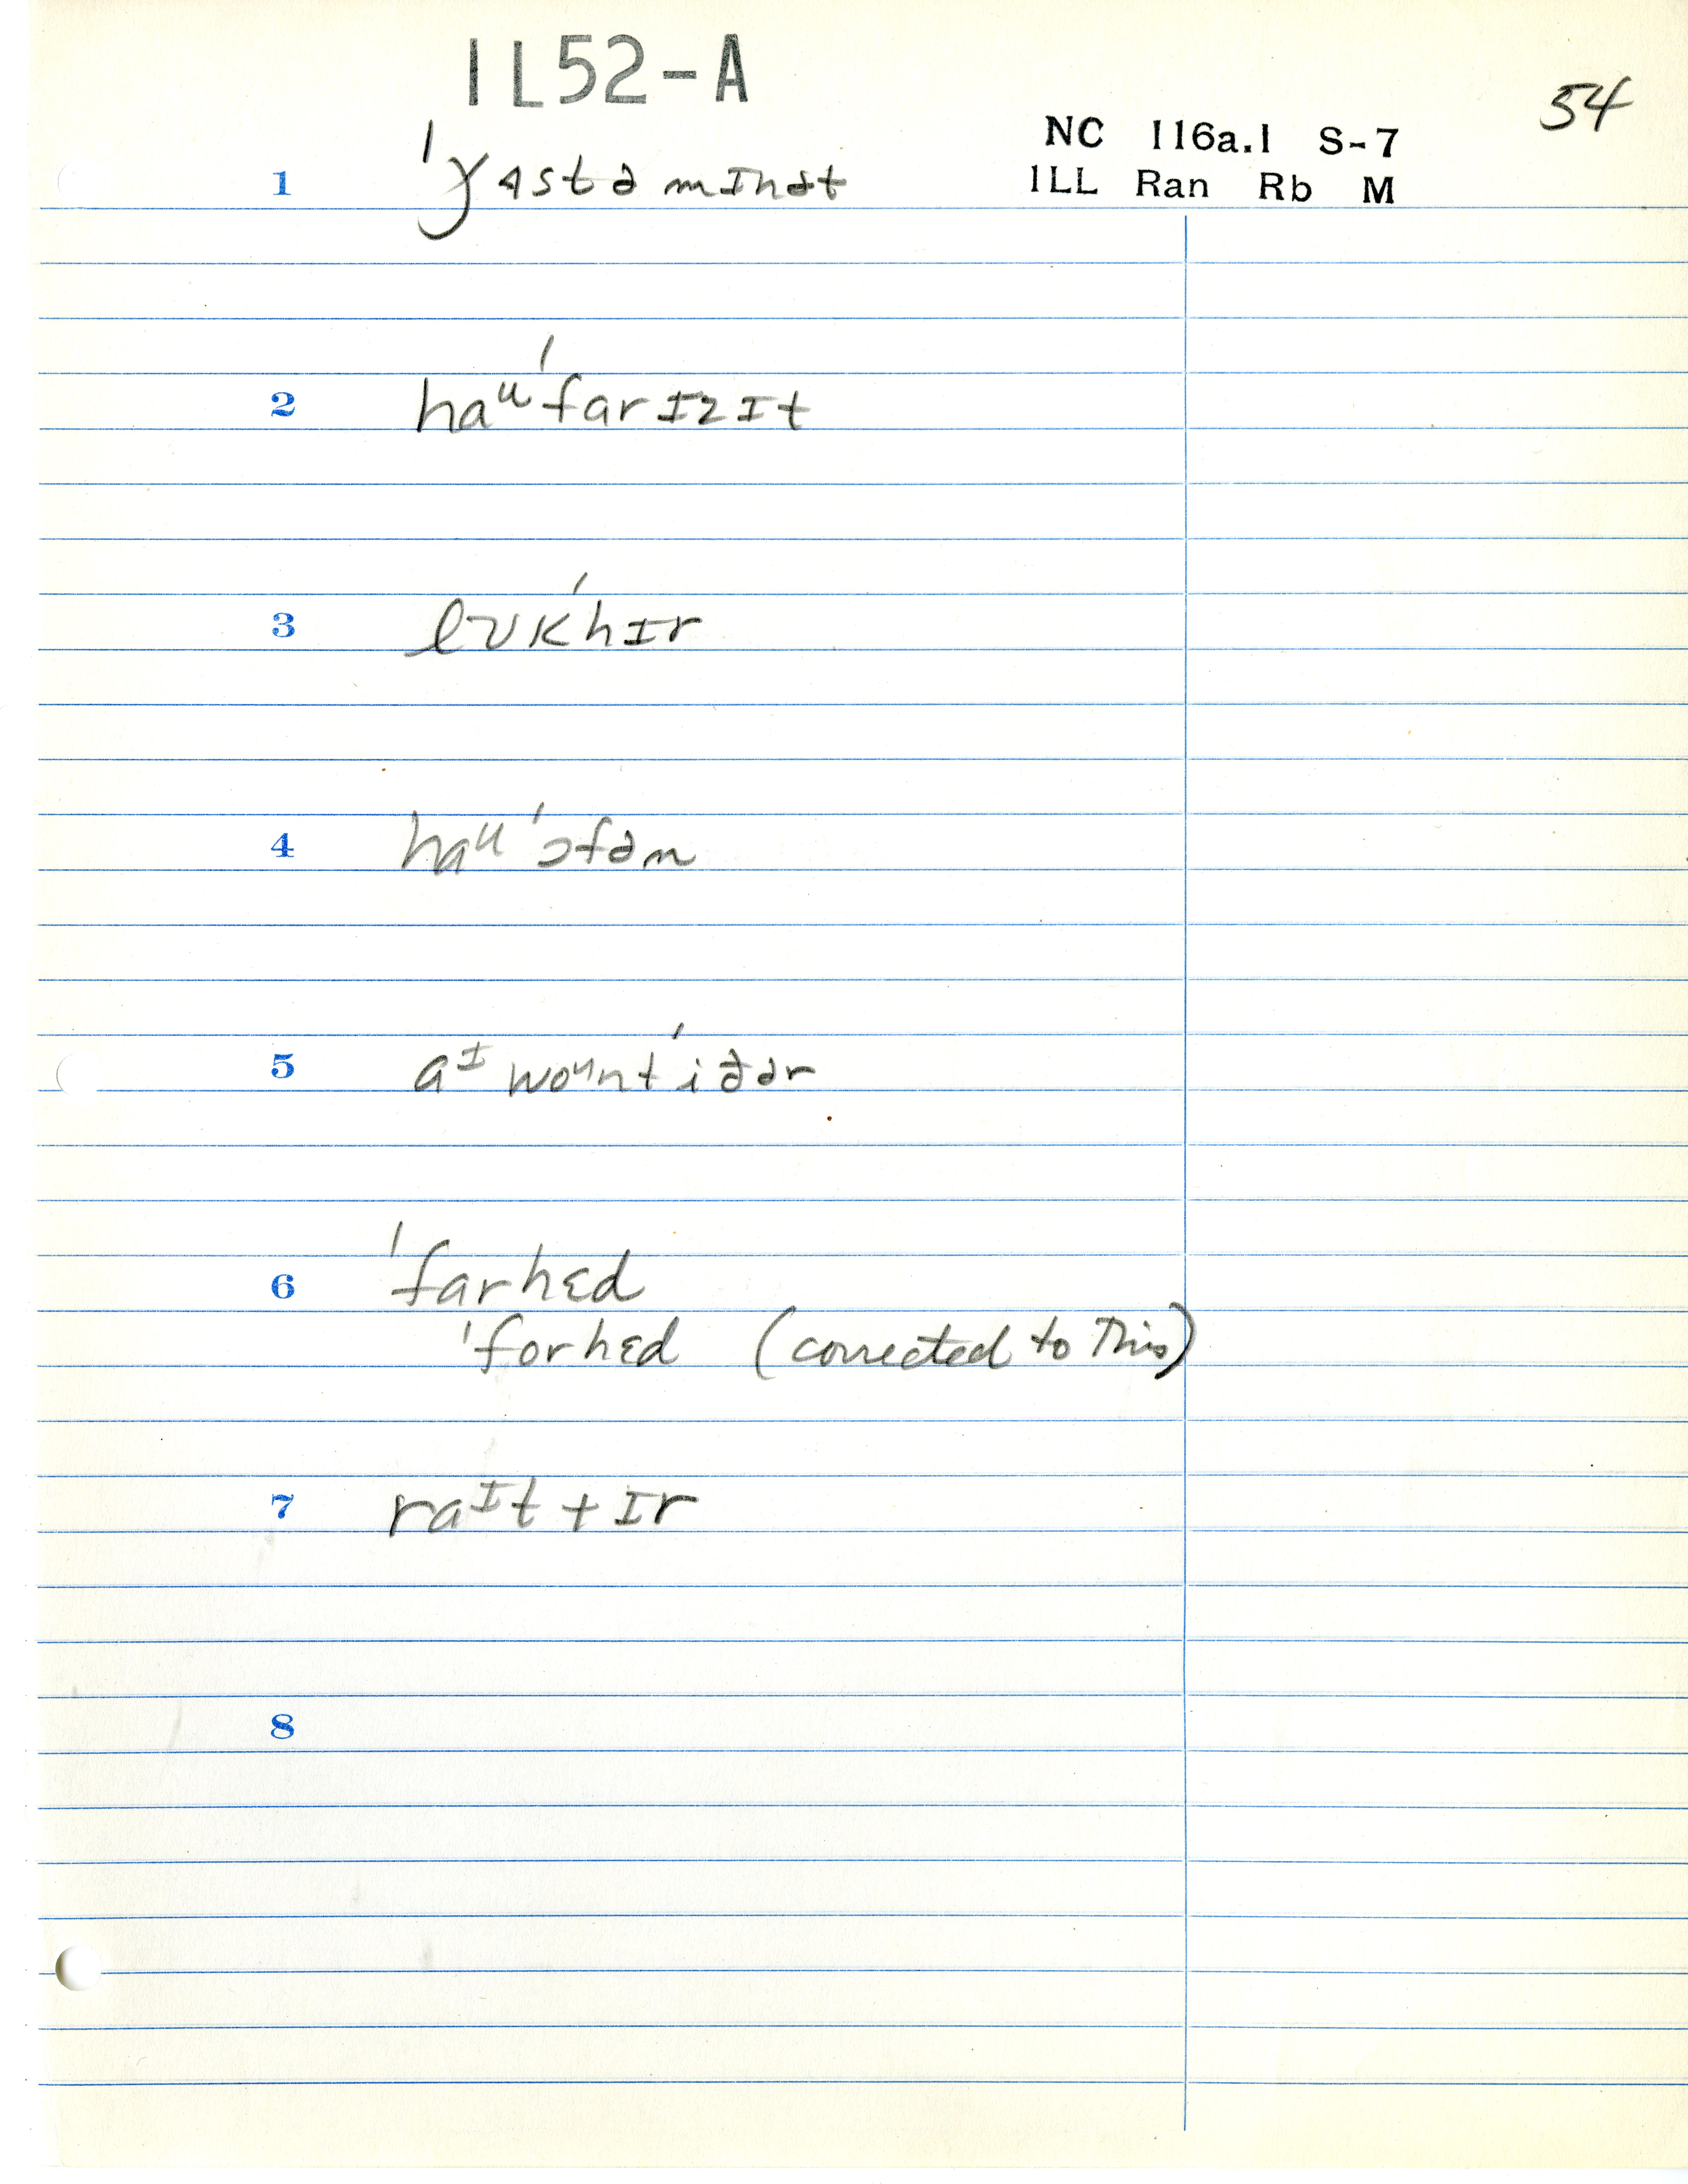 IL52-A
54
NC 116a.1 S-7
ILL Ran Rb M
1 ˈɣɑstə mɪnət
2 haᵘ ˈfar ɪz ɪt
3 lʊk ˈhɪr
4 haᵘ ˈɔfən
5 aᴵ woᵘnt ˈiðər
6 ˈfarhɛd
ˈforhɛd (corrected to this)
7 raᴵt + ɪr
8